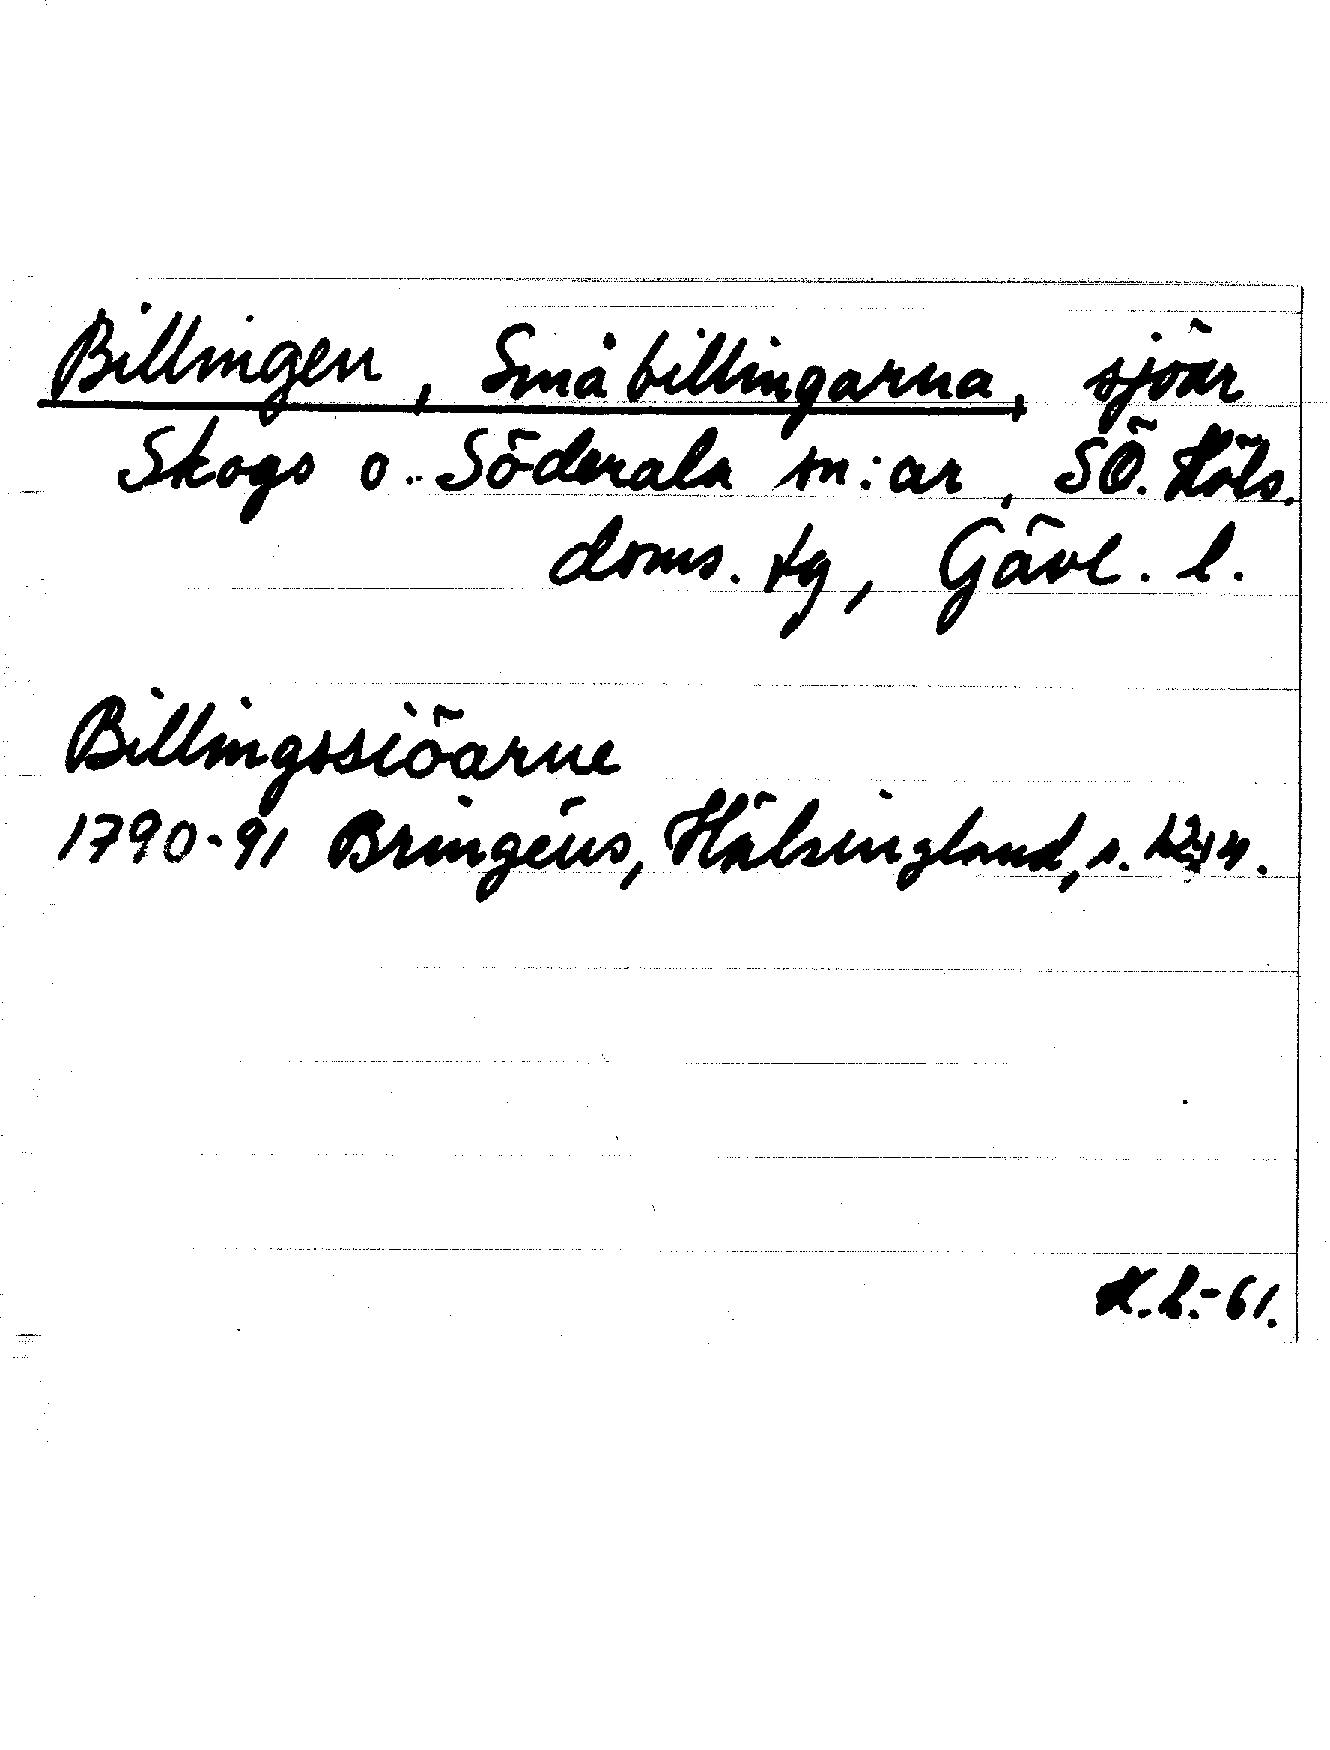 Billingen, Småbillingarna, sjöar
Skogs o. Söderala sn:ar, SÖ. Häls.
doms. tg, Gävl. l.
Billingssiöarne
1790-91 Bringéus, Hälsingland, s.
-61.